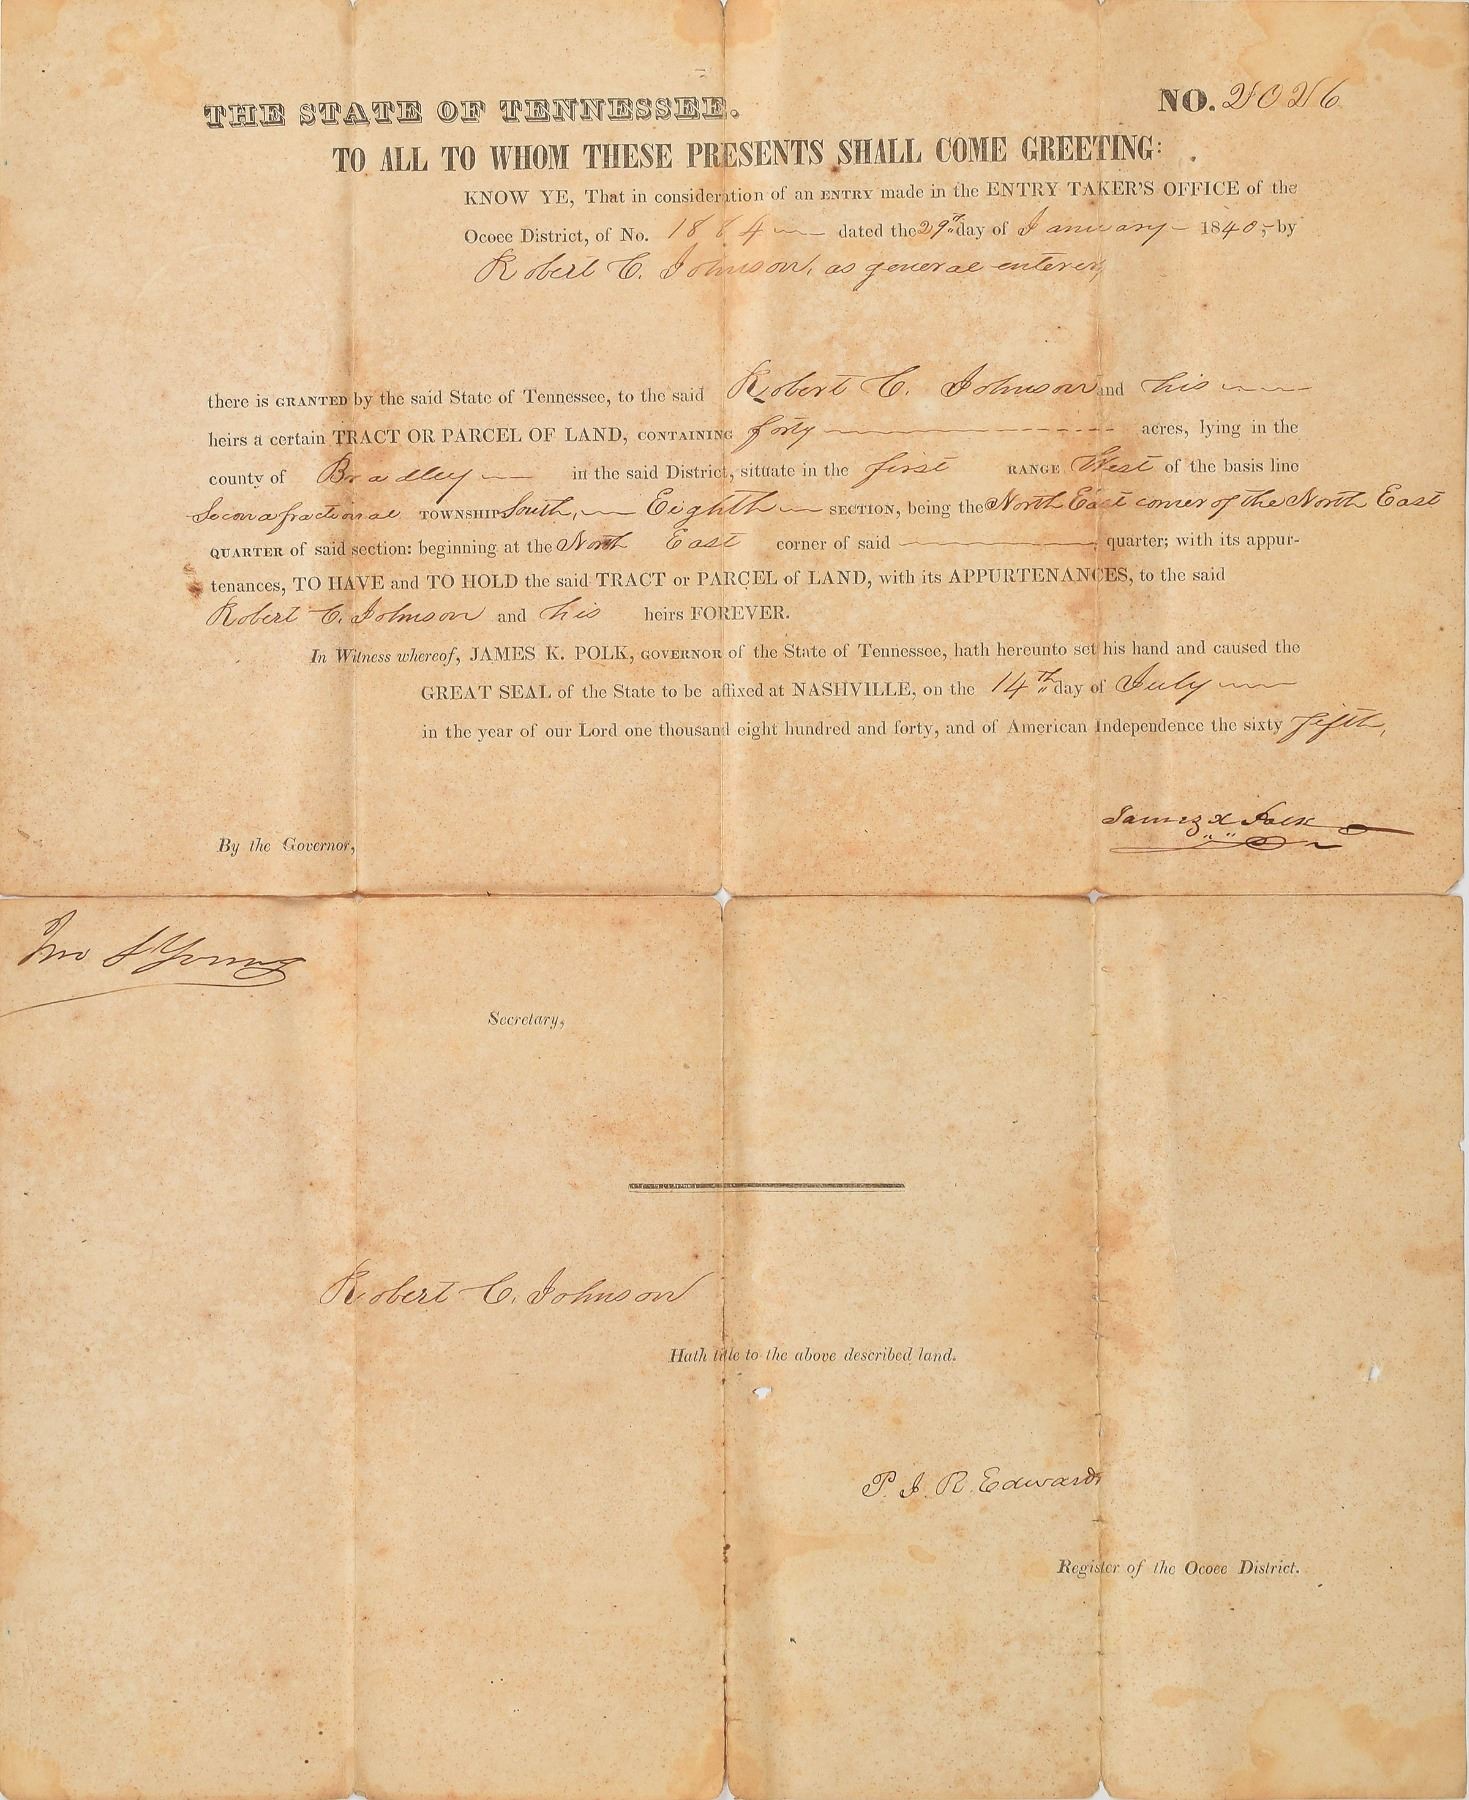 THE STATE OF TENNESSEE.
NO. 2026
TO ALL TO WHOM THESE PRESENTS SHALL COME GREETING:
KNOW YE, That in consideration of an ENTRY made in the ENTRY TAKER'S OFFICE of the
Ococe District, of No. 1884 dated the 29th day of January 1840, by
Robert C. Johnson, as general enterer,
there is GRANTED by the said State of Tennessee, to the said Robert C. Johnson and his
heirs a certain TRACT OR PARCEL OF LAND, CONTAINING forty acres, lying in the
county of Bradley in the said District, situate in the first RANGE West of the basis line
fractional TOWNSHIP South, Eighth SECTION, being the North East corner of the North East
QUARTER of said section: beginning at the North East corner of said quarter; with its appur-
tenances, TO HAVE and TO HOLD the said TRACT or PARCEL of LAND, with its APPURTENANCES, to the said
Robert C. Johnson and his heirs FOREVER.
In Witness whereof, JAMES K. POLK, GOVERNOR of the State of Tennessee, hath hereunto set his hand and caused the
GREAT SEAL of the State to be affixed at NASHVILLE, on the 14th day of July
in the year of our Lord one thousand eight hundred and forty, and of American Independence the sixty fifth,
James K Polk
By the Governor,
Jno S Young
Secretary,
Robert C. Johnson
Hath title to the above described land.
P. J. R. Edwards
Register of the Ococe District.